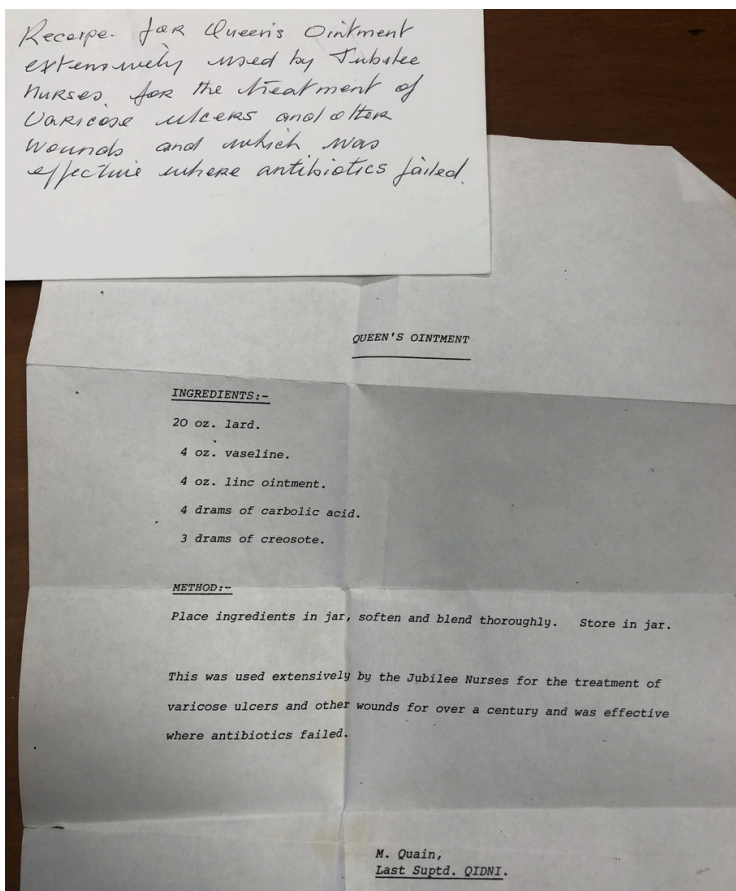 Recipe. for Queen's Ointment
extensively used by Jubilee
Nurses. for the treatment of
Varicose ulcers and other
wounds and which was
effective where antibiotics failed.
QUEEN'S OINTMENT
INGREDIENTS:-
20 oz. lard.
4 oz. vaseline.
4 oz. linc ointment.
4 drams of carbolic acid.
3 drams of creosote.
METHOD:-
Place ingredients in jar, soften and blend thoroughly. Store in jar.
This was used extensively by the Jubilee Nurses for the treatment of
varicose ulcers and other wounds for over a century and was effective
where antibiotics failed.
M. Quain,
Last Suptd. QIDNI.